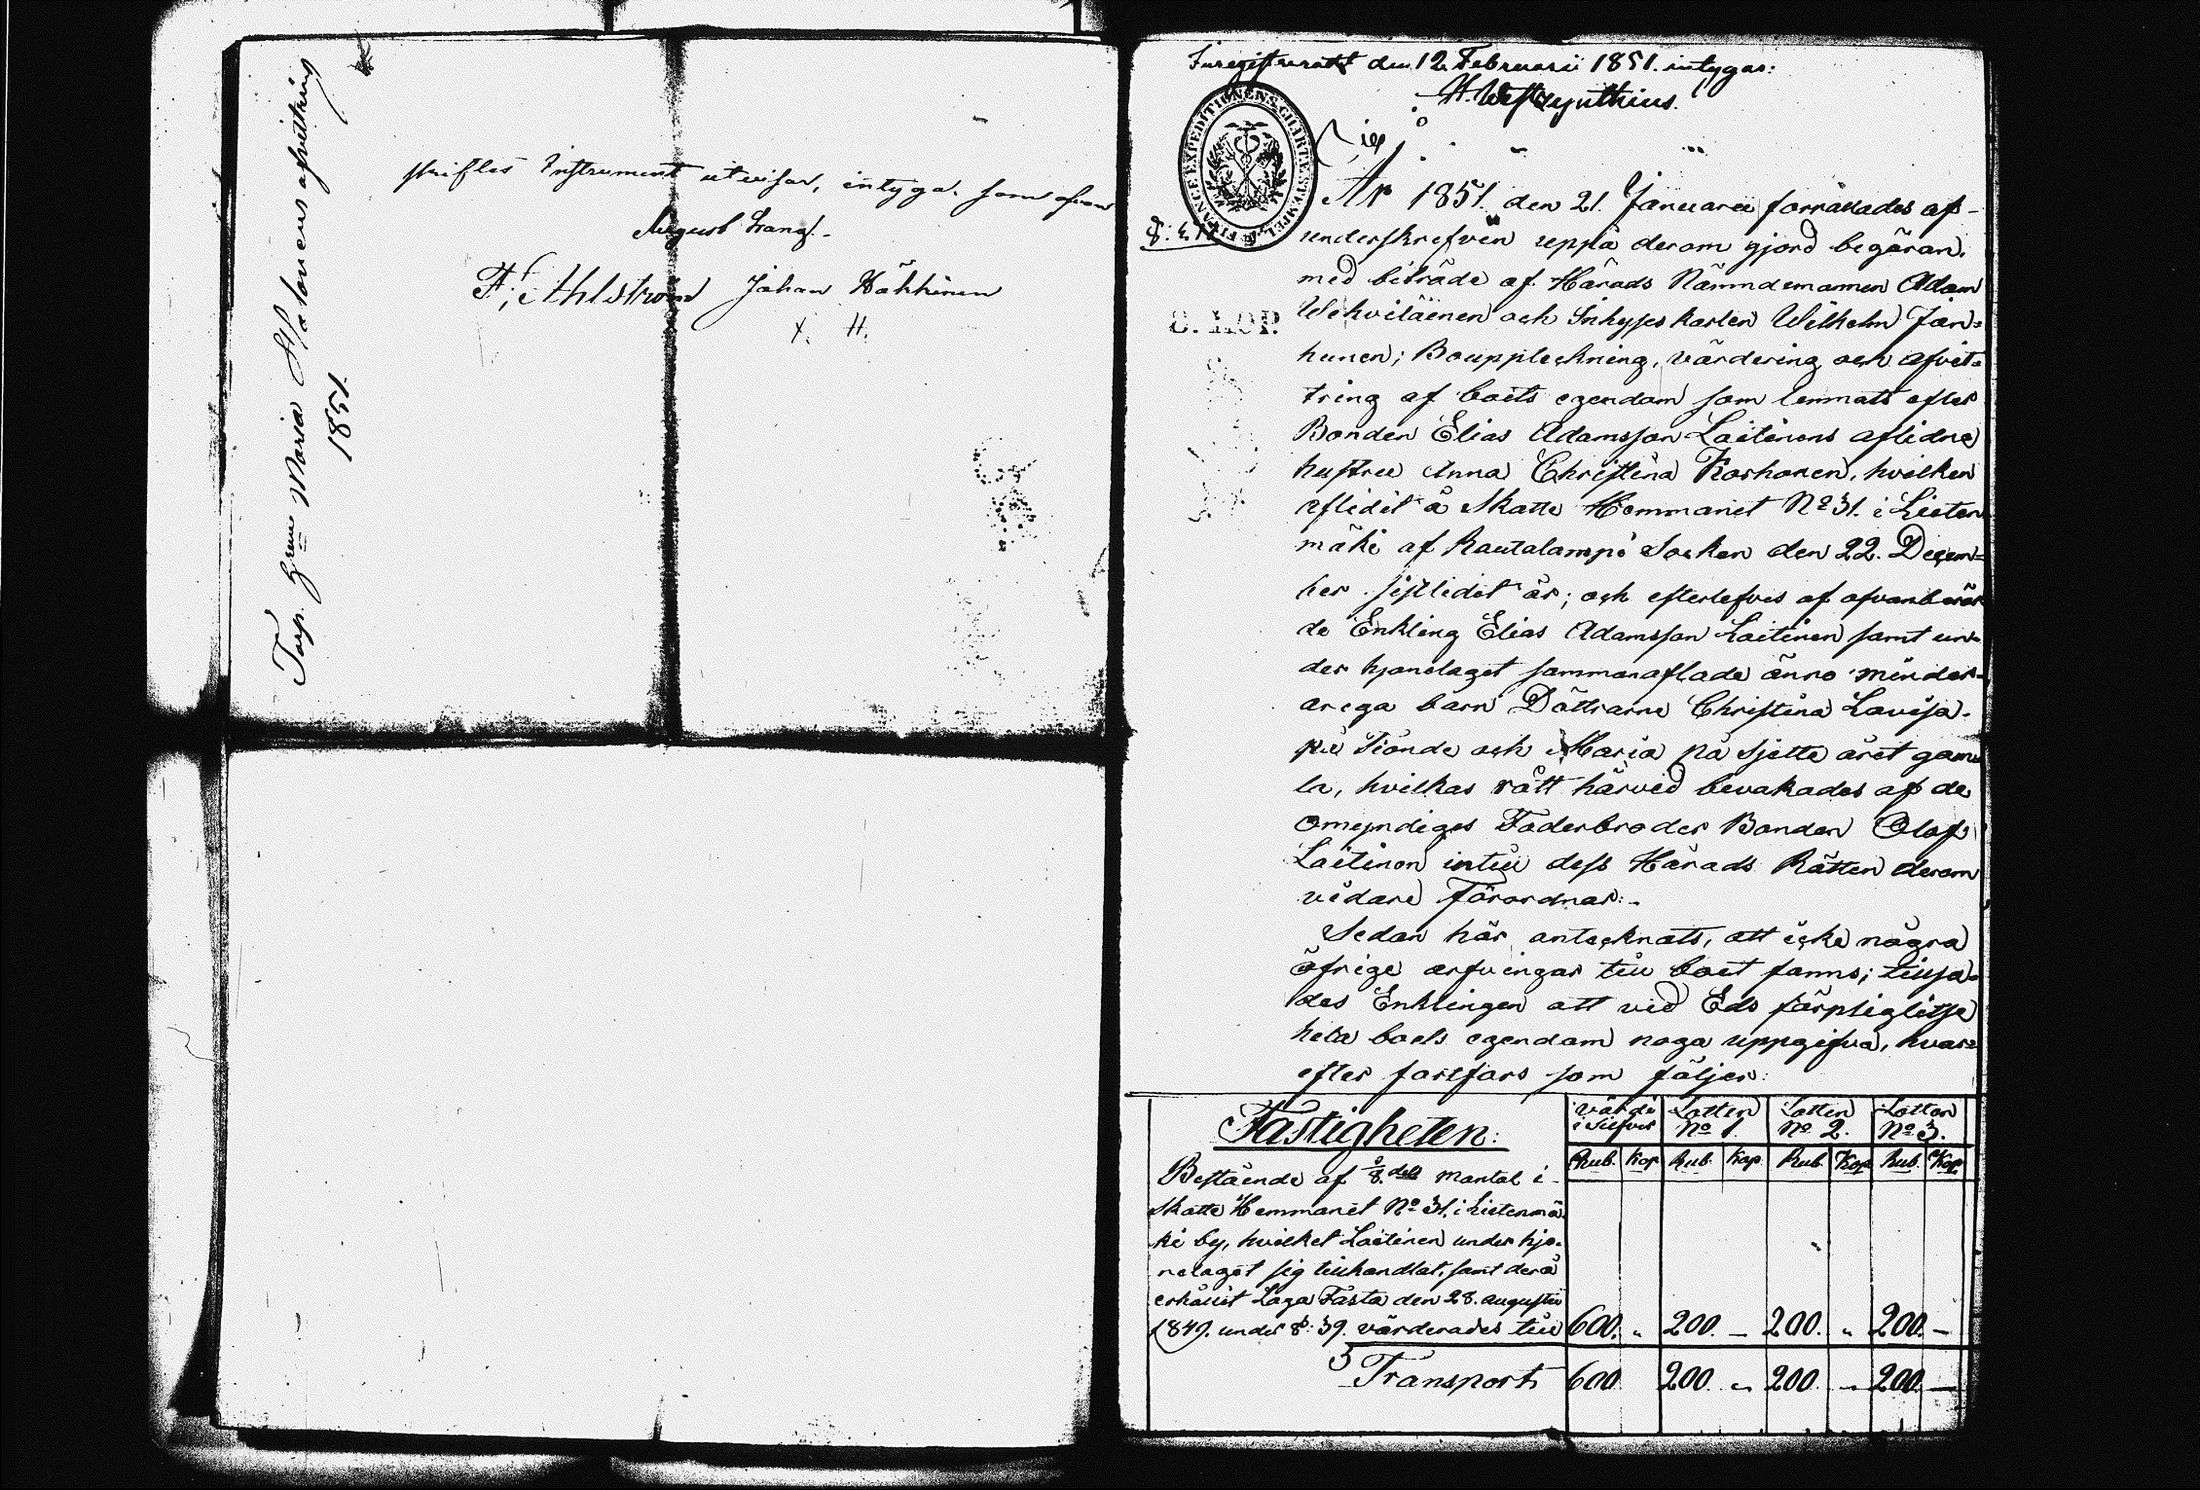 Torp. Enu Maria Halonens afvittring
1851.
skriftes Instrument utvisar, intyga. som ofvan
August Krang.
F. Ahlström Johan Häkkinen
X. H.
Inregistreradt den 12 Februari 1851. intygar:
H. Westzynthius.
FINANCE EXPEDITIONENS CHARTÆ STEMPEL
8. KOP.
År 1851. den 21. Januarii förrättades af
underskrefven uppå derom gjord begäran,
med biträde af Härads Nämndemannen Adam
Wehviläinen och Inhyses karlen Wilhelm Jän=
hunen; Bouppteckning, värdering och afvit=
tring af boets egendom som lemnats efter
Bonden Elias Adamsson Laitinens aflidne
hustru Anna Christina Korhonen, hvilken
aflidit å Skatte Hemmanet No 31. i Liiten
mäki af Rautalampi Socken den 22. Decem=
ber sistlidet år; och efterlefves af ofvanberör
de Enkling Elias Adamsson Laitinen samt un=
der hjonelaget sammanaflade ännu minder=
åriga barn Döttrarne Christina Lovisa.
på Tionde och Maria på Sjette året gam
la, hvilkas rätt härvid bevakades af de
omyndiges Faderbroder Bonden Olof
Laitinen intill dess Härads Rätten derom
vidare Förordnar.
Sedan här antecknats, att icke några
öfrige arfvingar till boet fanns; tillsa=
des Enklingen att vid Eds förpligtelse
hela boets egendom noga uppgifva, hvar=
efter fortfors som följer:
Fastigheten:
värde i Silfver
Lotten No 1.
Lotten No 2.
Lotten No 3.
Rub. Kop Rub. Kop Rub. Kop Rub. Kop
Bestående af 8.dels mantal i
Skatte Hemmanet No 31. i Liitenmä
ki by, hvilket Laitinen under hjo
nelaget sig tillhandlat, samt derå
erhållit Laga Fasta den 28. augusti
1849. under §: 39. värderades till 600. " 200. — 200. " 200. —
Transport 600 200 " 200 — 200 —